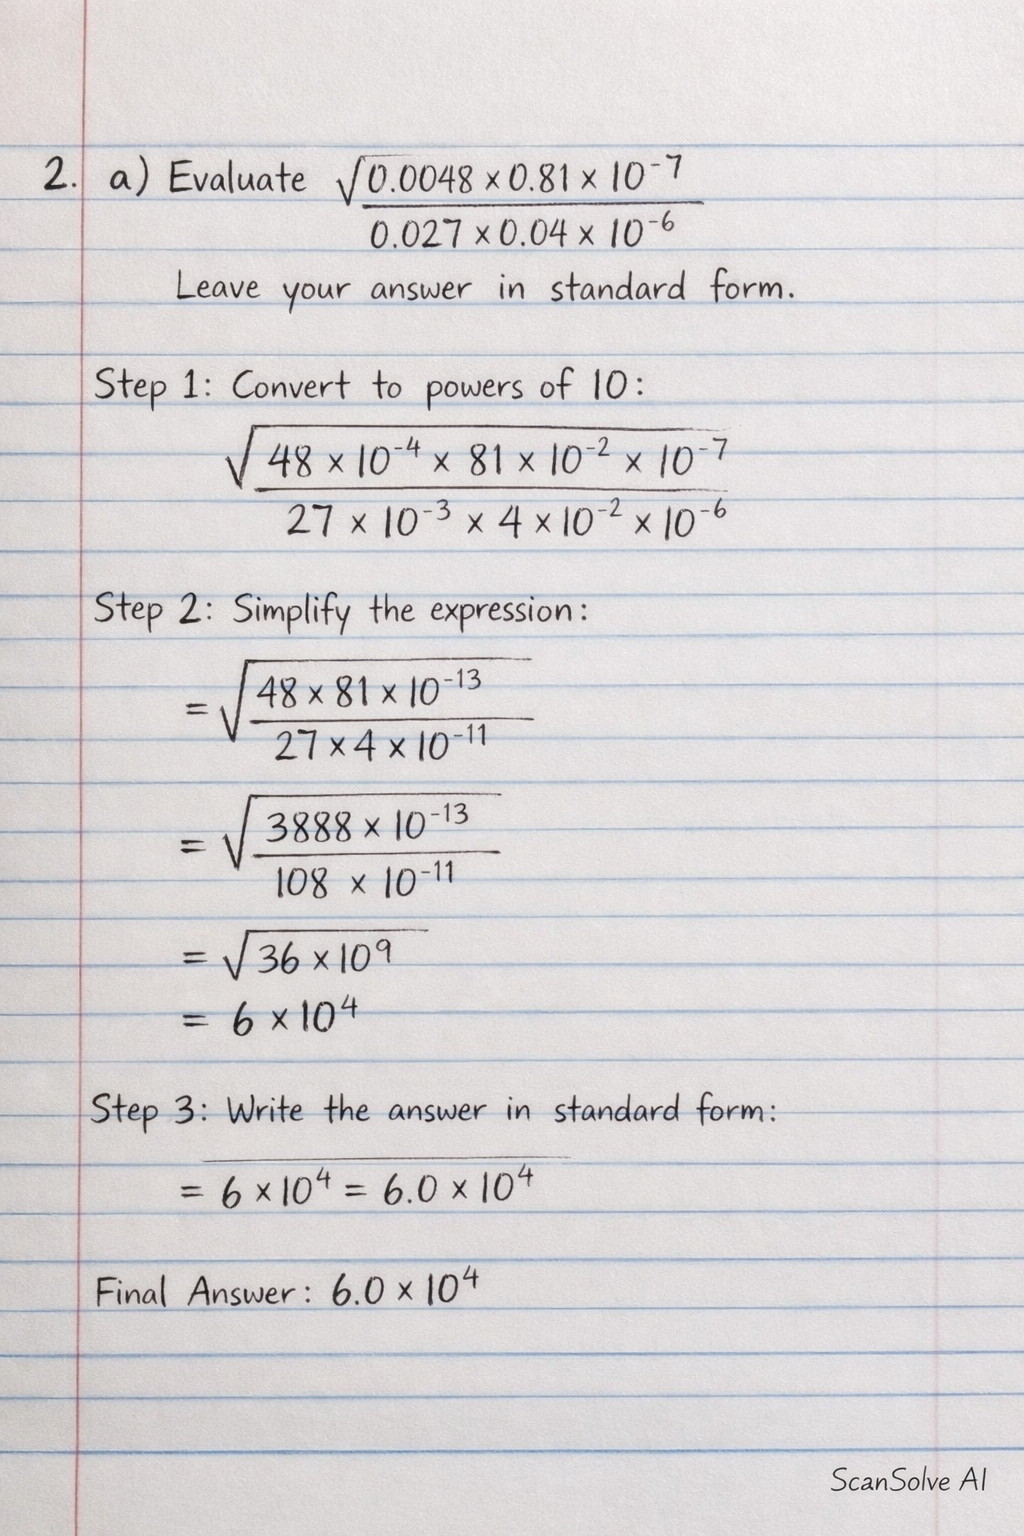 2. a) Evaluate √0.0048 × 0.81 × 10⁻⁷
0.027 × 0.04 × 10⁻⁶
Leave your answer in standard form.
Step 1: Convert to powers of 10:
√48 × 10⁻⁴ × 81 × 10⁻² × 10⁻⁷
27 × 10⁻³ × 4 × 10⁻² × 10⁻⁶
Step 2: Simplify the expression:
= √48 × 81 × 10⁻¹³
27 × 4 × 10⁻¹¹
= √3888 × 10⁻¹³
108 × 10⁻¹¹
= √36 × 10⁹
= 6 × 10⁴
Step 3: Write the answer in standard form:
= 6 × 10⁴ = 6.0 × 10⁴
Final Answer: 6.0 × 10⁴
ScanSolve AI